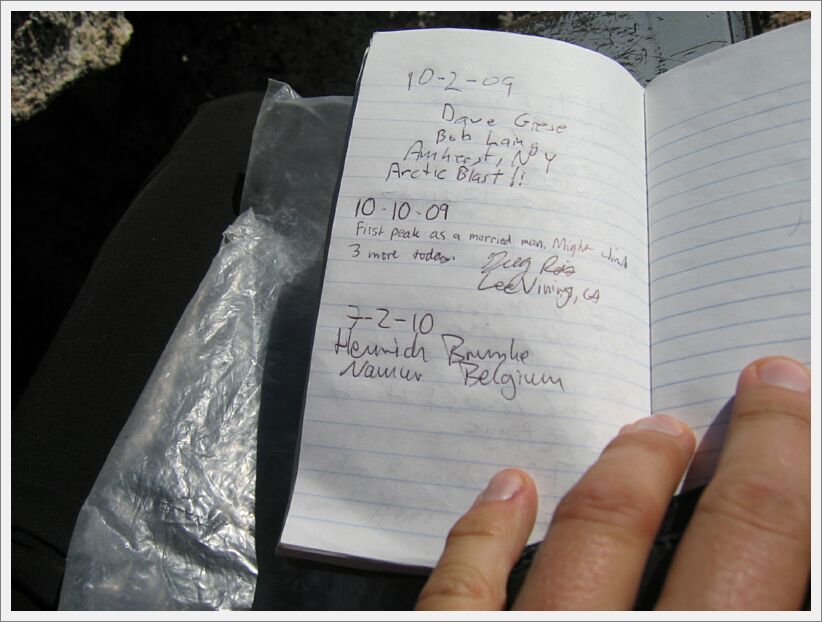 10-2-09
Dave Giese
Bob Lang
Amherst, NY
Arctic Blast!!
10-10-09
First peak as a married man. Might climb
3 more today.
Lee Vining, CA
7-2-10
Namur Belgium